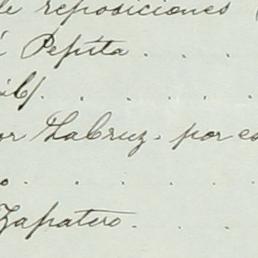 de reposiciones
Pepita . . .
. . . .
or LaCruz. por
o . . . .
Zapatero. . .